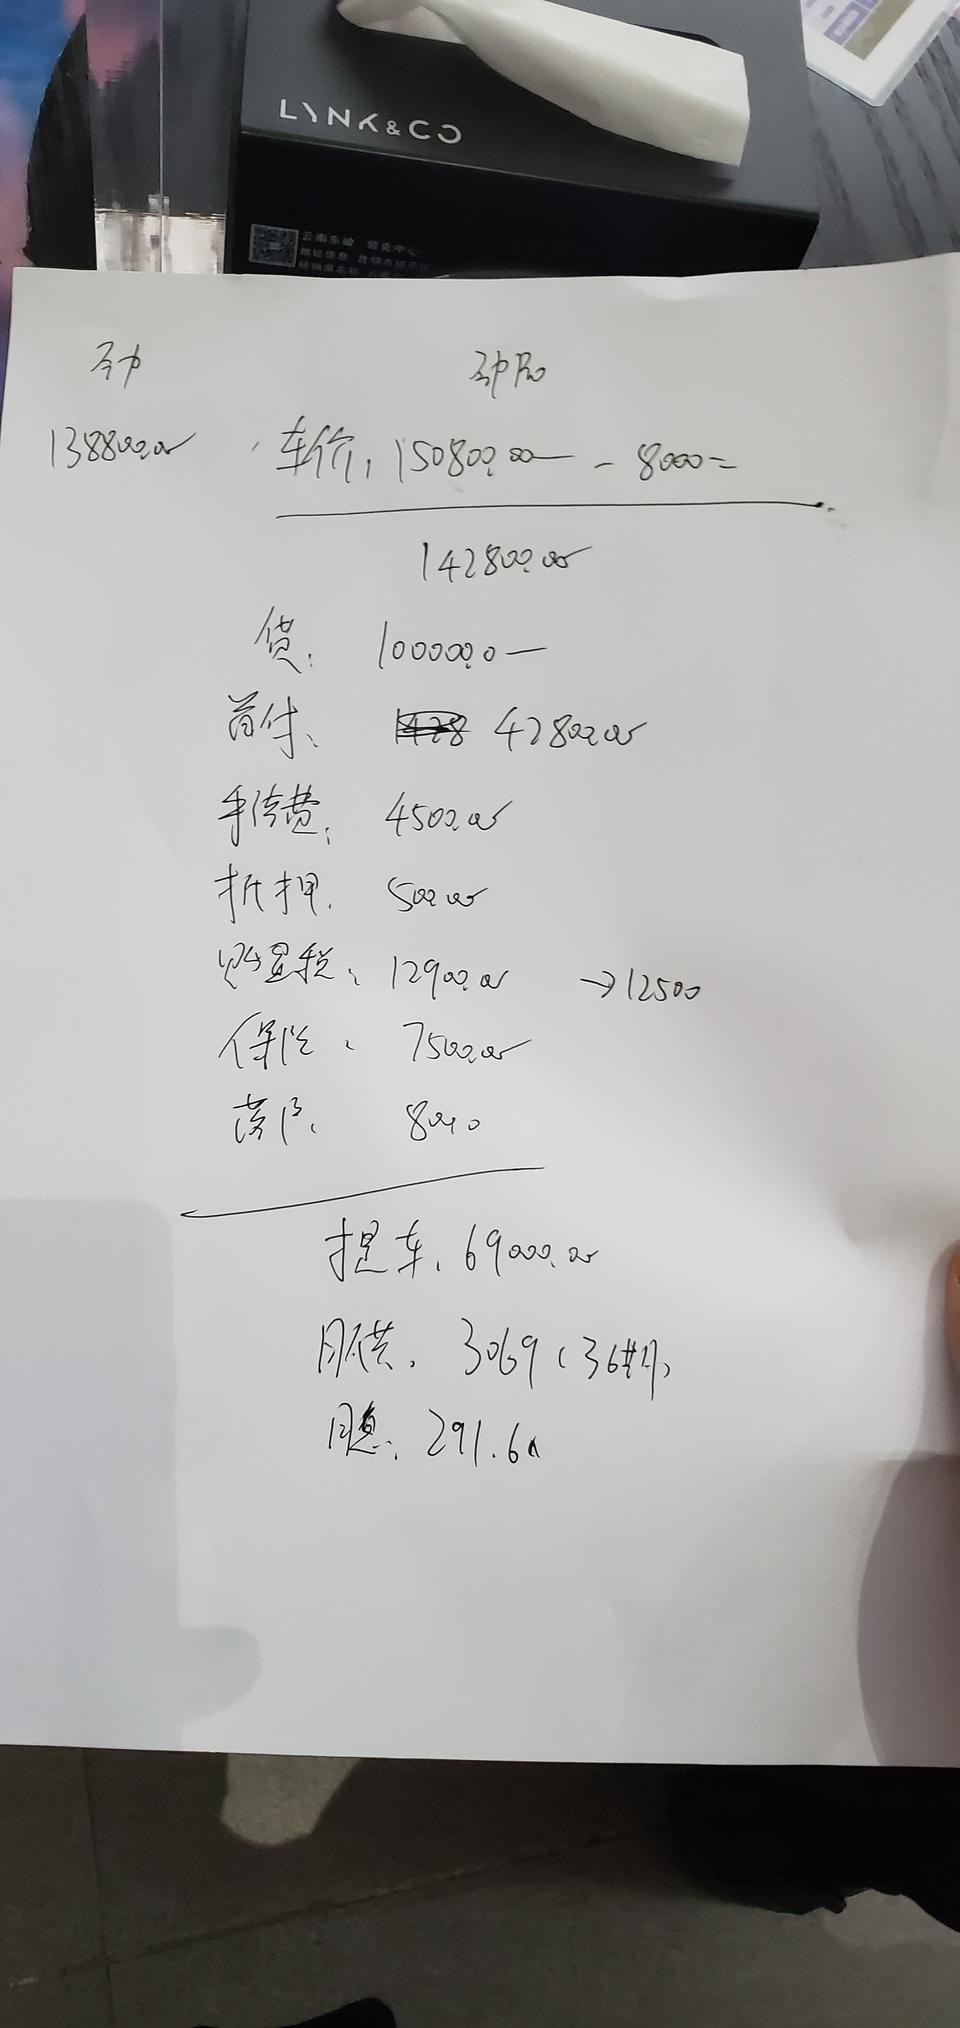 LYNK&CO
云南东骏 领克中心
劲 劲Pro
138800.00 车价: 150800.00 - 8000=
142800.00
贷: 100000.0
首付: 42800.00
手续费: 4500.00
抵押: 500.00
购置税: 12900.00 →12500
保险: 7500.00
落户: 800.0
提车: 69000.00
月供: 3069 (36期)
月息: 291.6